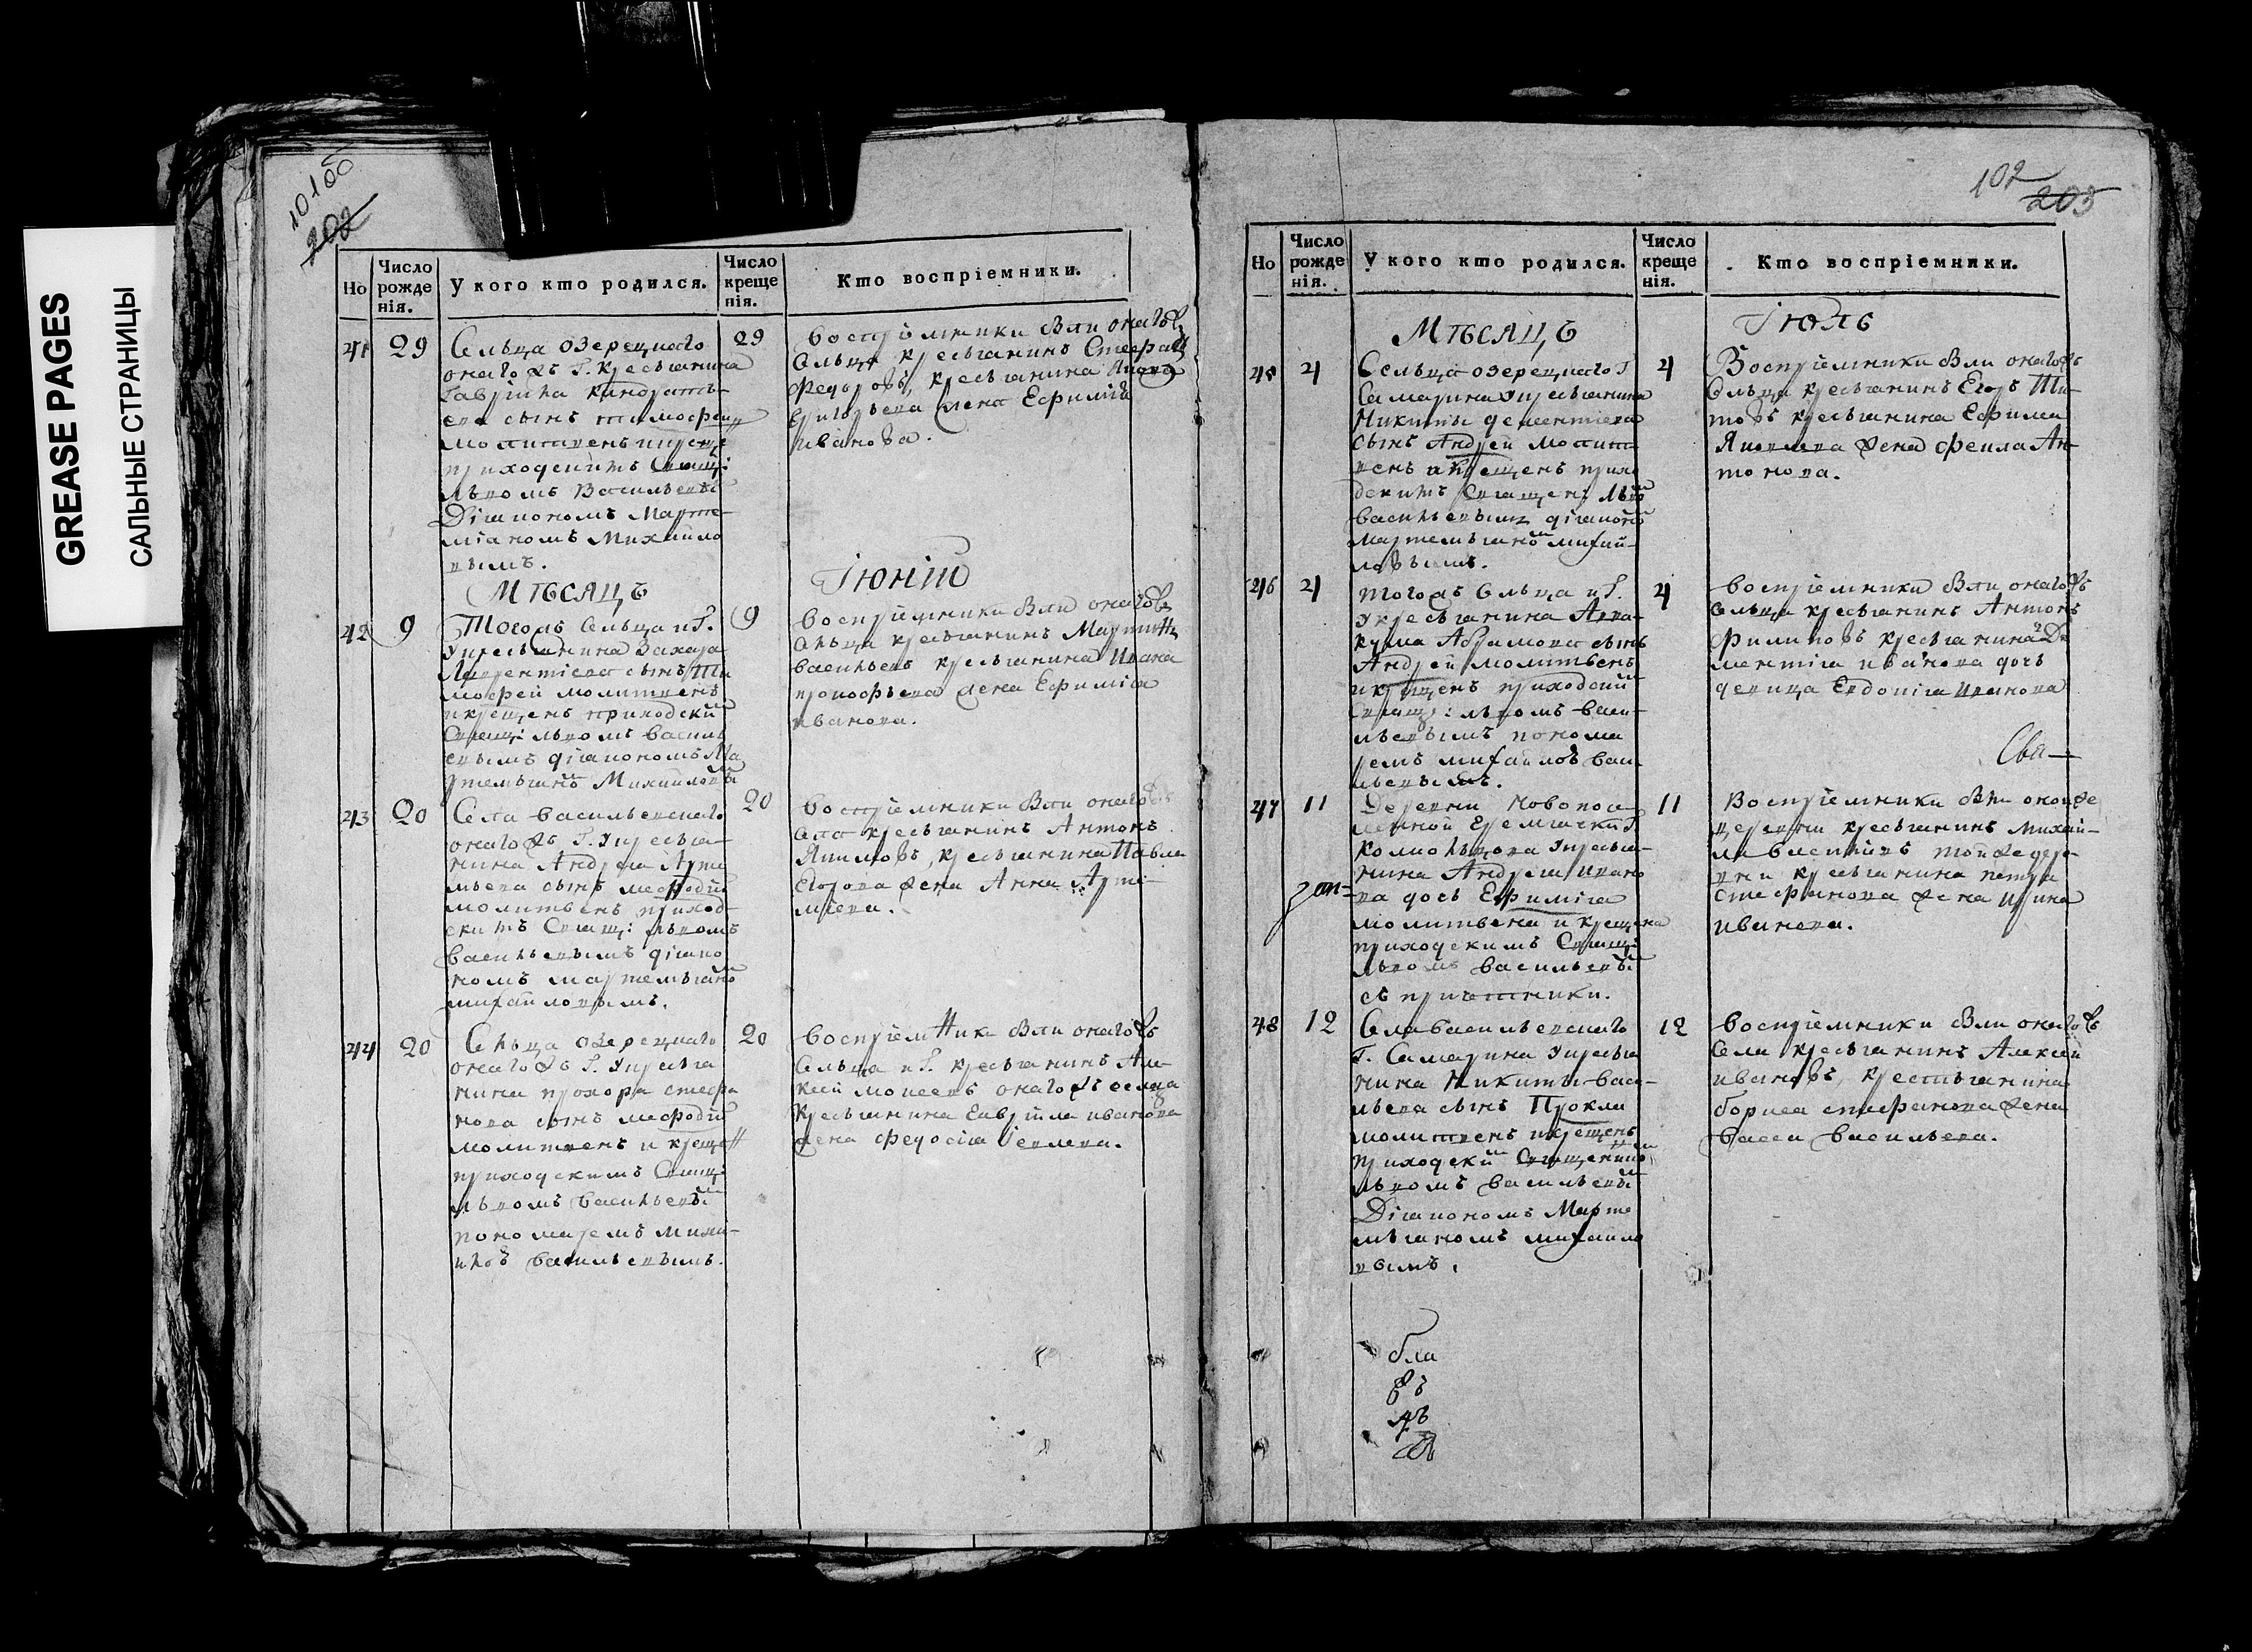 GREASE PAGES
САЛЬНЫЕ СТРАНИЦЫ
202
Но
Число рожде нія.
У кого кто родился.
Число креще нія.
Кто воспріемники.
41
29
Сельца озерецкаго
онагожъ Г. крестьянина
Гаврила Кондрать-
ева сынъ тимофей
молитвенъ
приходскимъ Свящ:
львомъ Васильевы
Діакономъ Марте-
міаномъ Михайло
вымъ.
29
воспріемники были онагожъ
сельца крестьянинъ Стефанъ
Федоровъ, крестьянина
Григорьева жена Ефимія
иванова.
Мѣсяцъ
Іюній
42
9
Тогожъ сельца и Г.
у крестьянина Захара
Лаврентіева сынъ Ти
мофей молитвенъ
и крещенъ приходски
Свящ: львомъ василь
евымъ діакономъ Ма
ртемьяно Михайловы
9
воспріемники были онагожъ
сельца крестьянинъ Мартинъ
васильевъ крестьянина Ивана
прокофьева жена Ефимія
иванова.
43
20
Села васильевскаго
онагожъ Г. у крестья-
нина Андрея Арте
мьева сынъ мефодій
молитвенъ приход-
скимъ Свящ: львомъ
васильевымъ діако
номъ мартемьяно
михайловымъ.
20
воспріемники были онагожъ
села крестьянинъ Антонъ
Якимовъ, крестьянина Павла
Егорова жена Анна Арте-
мьева.
44
20
Сельца озерецкаго
онагожъ Г. у крестья
нина прохора стефа
нова сынъ мефодій
молитвенъ и крещен
приходскимъ Свящ:
львомъ васильевы
пономаремъ миха-
ило васильевымъ.
20
воспріемники были онагожъ
сельца и Г. крестьянинъ Але-
ксей моисеевъ онагожъ сельца
крестьянина Гаврила иванова
жена федосія Іевлева.
102
203
Но
Число рожде нія.
У кого кто родился.
Число креще нія.
Кто воспріемники.
Мѣсяцъ
Іюль
45
4
Сельца озерецкаго Г
Самарина у крестьянина
Никиты дементіева
сынъ Андрей молит
венъ и крещенъ прихо
дскимъ Священ: льво
васильевымъ діаконо
мартемьяно михай-
ловымъ.
4
Воспріемники были онагожъ
сельца крестьянинъ Егоръ Ти-
товъ крестьянина Ефима
Яковлева жена фекла Ан-
тонова.
46
4
Тогожъ сельца и Г.
у крестьянина Авва-
кума Абрамова сынъ
Андрей молитвенъ
и крещенъ приходски
Свящ: львомъ васи-
льевымъ понома
ремъ михаило васи-
льевымъ.
4
воспріемники были онагожъ
сельца крестьянинъ Антонъ
Филиповъ крестьянина Де
ментія иванова дочь
девица Евдокія иванова
Свя—
47
11
Деревни Новопоси-
ленной Еремяски Г.
Комольцова у крестья-
нина Андрея ивано
ва дочь Ефимія
молитвена и крещена
приходскимъ Свящ:
львомъ васильевы
съ причетники.
11
Воспріемники были онойже
деревни крестьянинъ михай-
ла тойжедере-
вни крестьянина петра
Стефанова жена ирина
иванова.
48
12
Села васильевскаго
Г. Самарина у крестья
нина Никиты васи-
льева сынъ Прокла
молитвенъ и крещенъ
приходски Священнико
львомъ васильевы
Діакономъ Марте
мьяномъ михайло
вымъ.
12
воспріемники были онагожъ
села крестьянинъ Алексей
ивановъ, крестьянина
бориса стефанова жена
васса васильева.